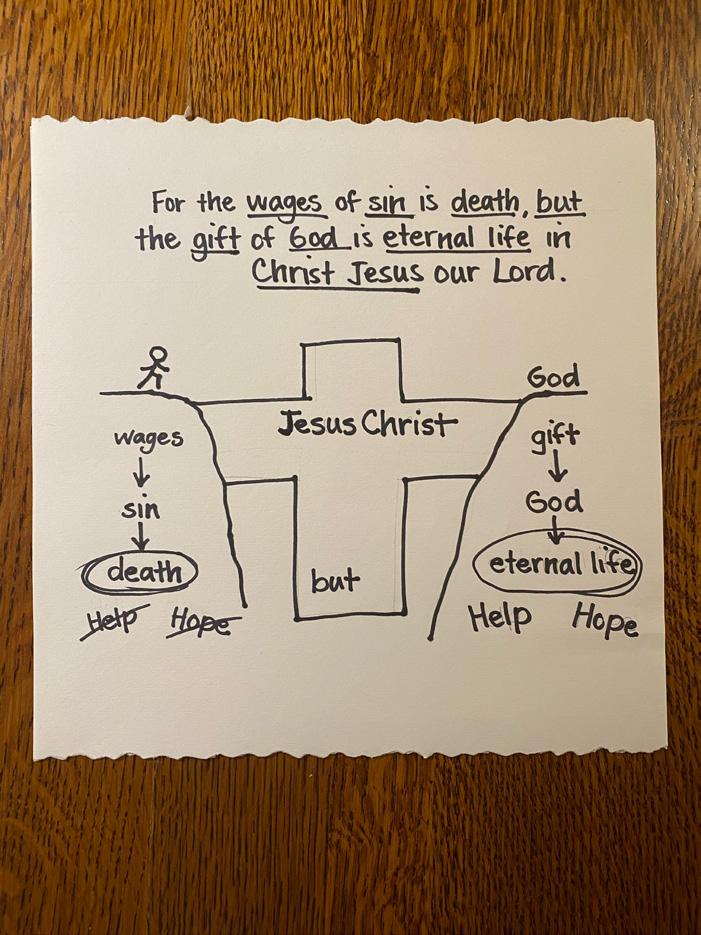 For the wages of sin is death, but
the gift of God is eternal life in
Christ Jesus our Lord.
God
Jesus Christ
wages
gift
sin
God
death
eternal life
but
Help Hope
Help Hope